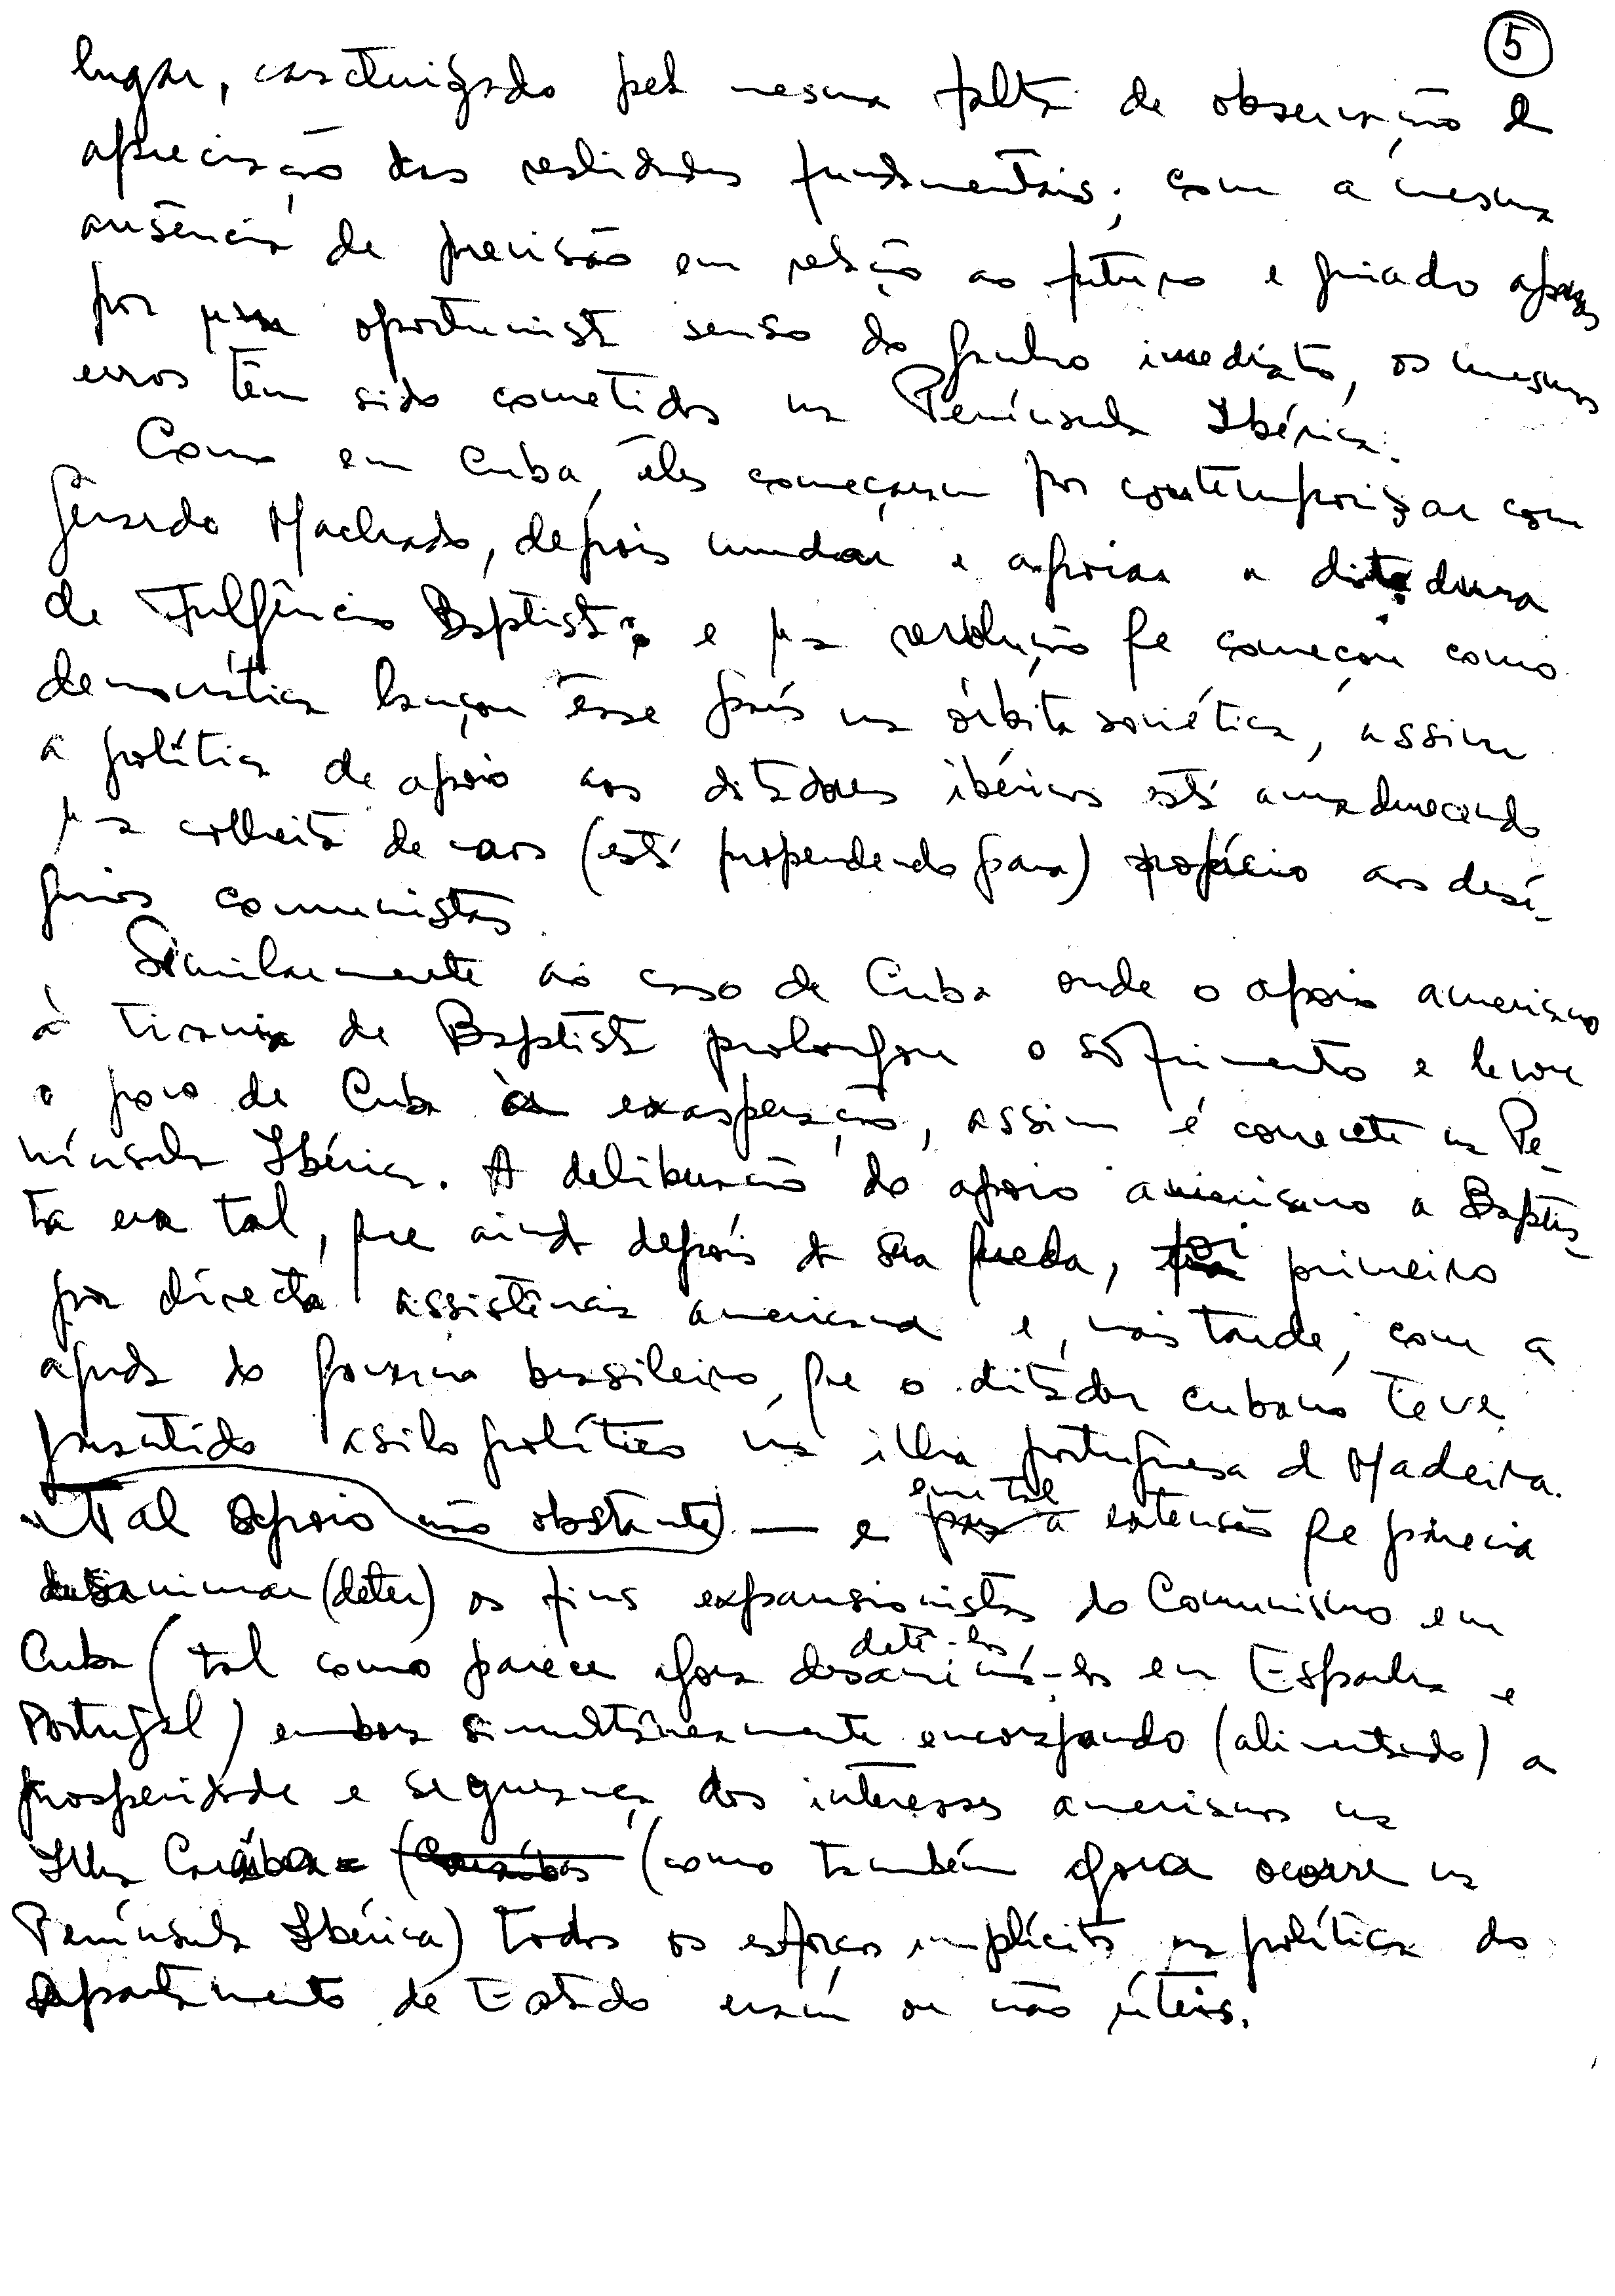 5
lugar, caracterizado pela mesma falta de observação e
apreciação das realidades fundamentais; com a mesma
ausência de previsão em relação ao futuro e guiado apenas
por um oportunista senso do ganho imediato, os mesmos
erros têm sido cometidos na Península Ibérica.
Como em Cuba, êles começaram por contemporizar com
Gerardo Machado, depois mudar e apoiar a ditadura
de Fulgêncio Baptista; e uma revolução que começou como
democrática lançou êsse país na órbita soviética, assim
a política de apoio aos ditadores ibéricos está amadurecendo
uma colheita de caos (está propendendo para) propício aos desí-
gnios comunistas.
Similarmente ao caso de Cuba onde o apoio americano
à tirania de Baptista prolongou o sofrimento e levou
o povo de Cuba à exasperação, assim é corrente na Pe-
nínsula Ibérica. A deliberação do apoio americano a Baptis-
ta era tal, que ainda depois da sua queda, foi primeiro
por directa assistência americana e, mais tarde, com a
ajuda do govêrno brasileiro, que o ditador cubano teve
garantido asilo político na ilha portuguesa da Madeira.
Tal apoio não obstante — e em tal extensão que parecia
desanimar (deter) os fins expansionistas do Comunismo em
Cuba (tal como parece agora desanimá-los detê-los em Espanha e
Portugal) embora simultâneamente encorajando (alimentando) a
prosperidade e segurança dos interesses americanos na
Ilha Caraíba (Caraíbas (como também agora ocorre na
Península Ibérica) todos os esforços implícitos na política do
Departamento de Estado eram ou não úteis.